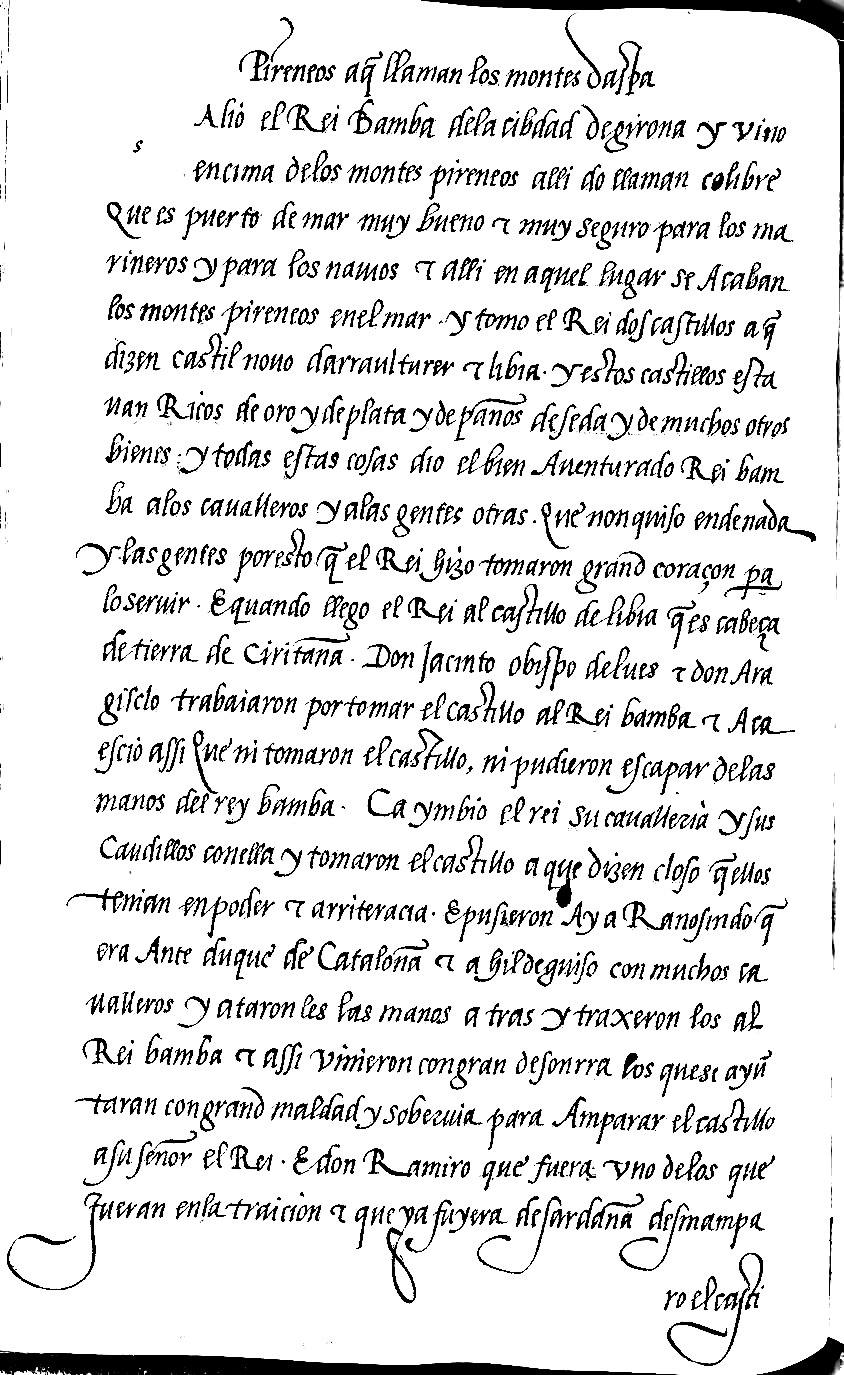 Pireneos aq̃ llaman los montes daspa
Alio el Rei Bamba dela cibdad de girona y vino
s
encima delos montes pireneos alli do llaman colibre
Que es puerto de mar muy bueno ⁊ muy seguro para los ma
rineros y para los nauios ⁊ alli en aquel lugar se Acaban
los montes pireneos enel mar . y tomo el Rei dos castillos a q̃
dizen castil nouo darraulturer ⁊ libia . y estos castillos esta
uan Ricos de oro y de plata y de pan̄os de seda y de muchos otros
bienes : y todas estas cosas dio el bien Auenturado Rei bam
ba alos caualleros y alas gentes otras . Que non quiso endenada
y las gentes por esto q̃ el Rei hizo tomaron grand coraçon pa
lo seruir . E quando llego el Rei al castillo de libia q̃ es cabeça
de tierra de Ciritan̄a . Don Jacinto obispo delues ⁊ don Ara
gisclo trabaiaron por tomar el castillo al Rei bamba ⁊ Aca
escio assi Que ni tomaron el castillo, ni pudieron escapar delas
manos del rey bamba . Ca ymbio el rei su caualleria y sus
Caudillos conella y tomaron el castillo a que dizen closo q̃ ellos
tenian en poder ⁊ arriteracia . E pusieron Ay a Ranosindo q̃
era Ante duque de Catalon̄a ⁊ a hildeguiso con muchos ca
ualleros y ataron les las manos a tras y traxeron los al
Rei bamba ⁊ assi vinieron con gran desonrra los que se ayū
taran con grand maldad y soberuia para Amparar el castillo
a su señor el Rei . E don Ramiro que fuera vno delos que
fueran enla traicion ⁊ que ya fuyera de sardan̄a desmampa
ro el casti